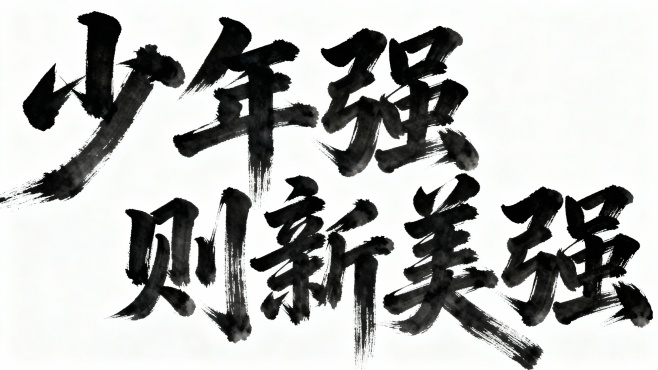 少年强
则新美强